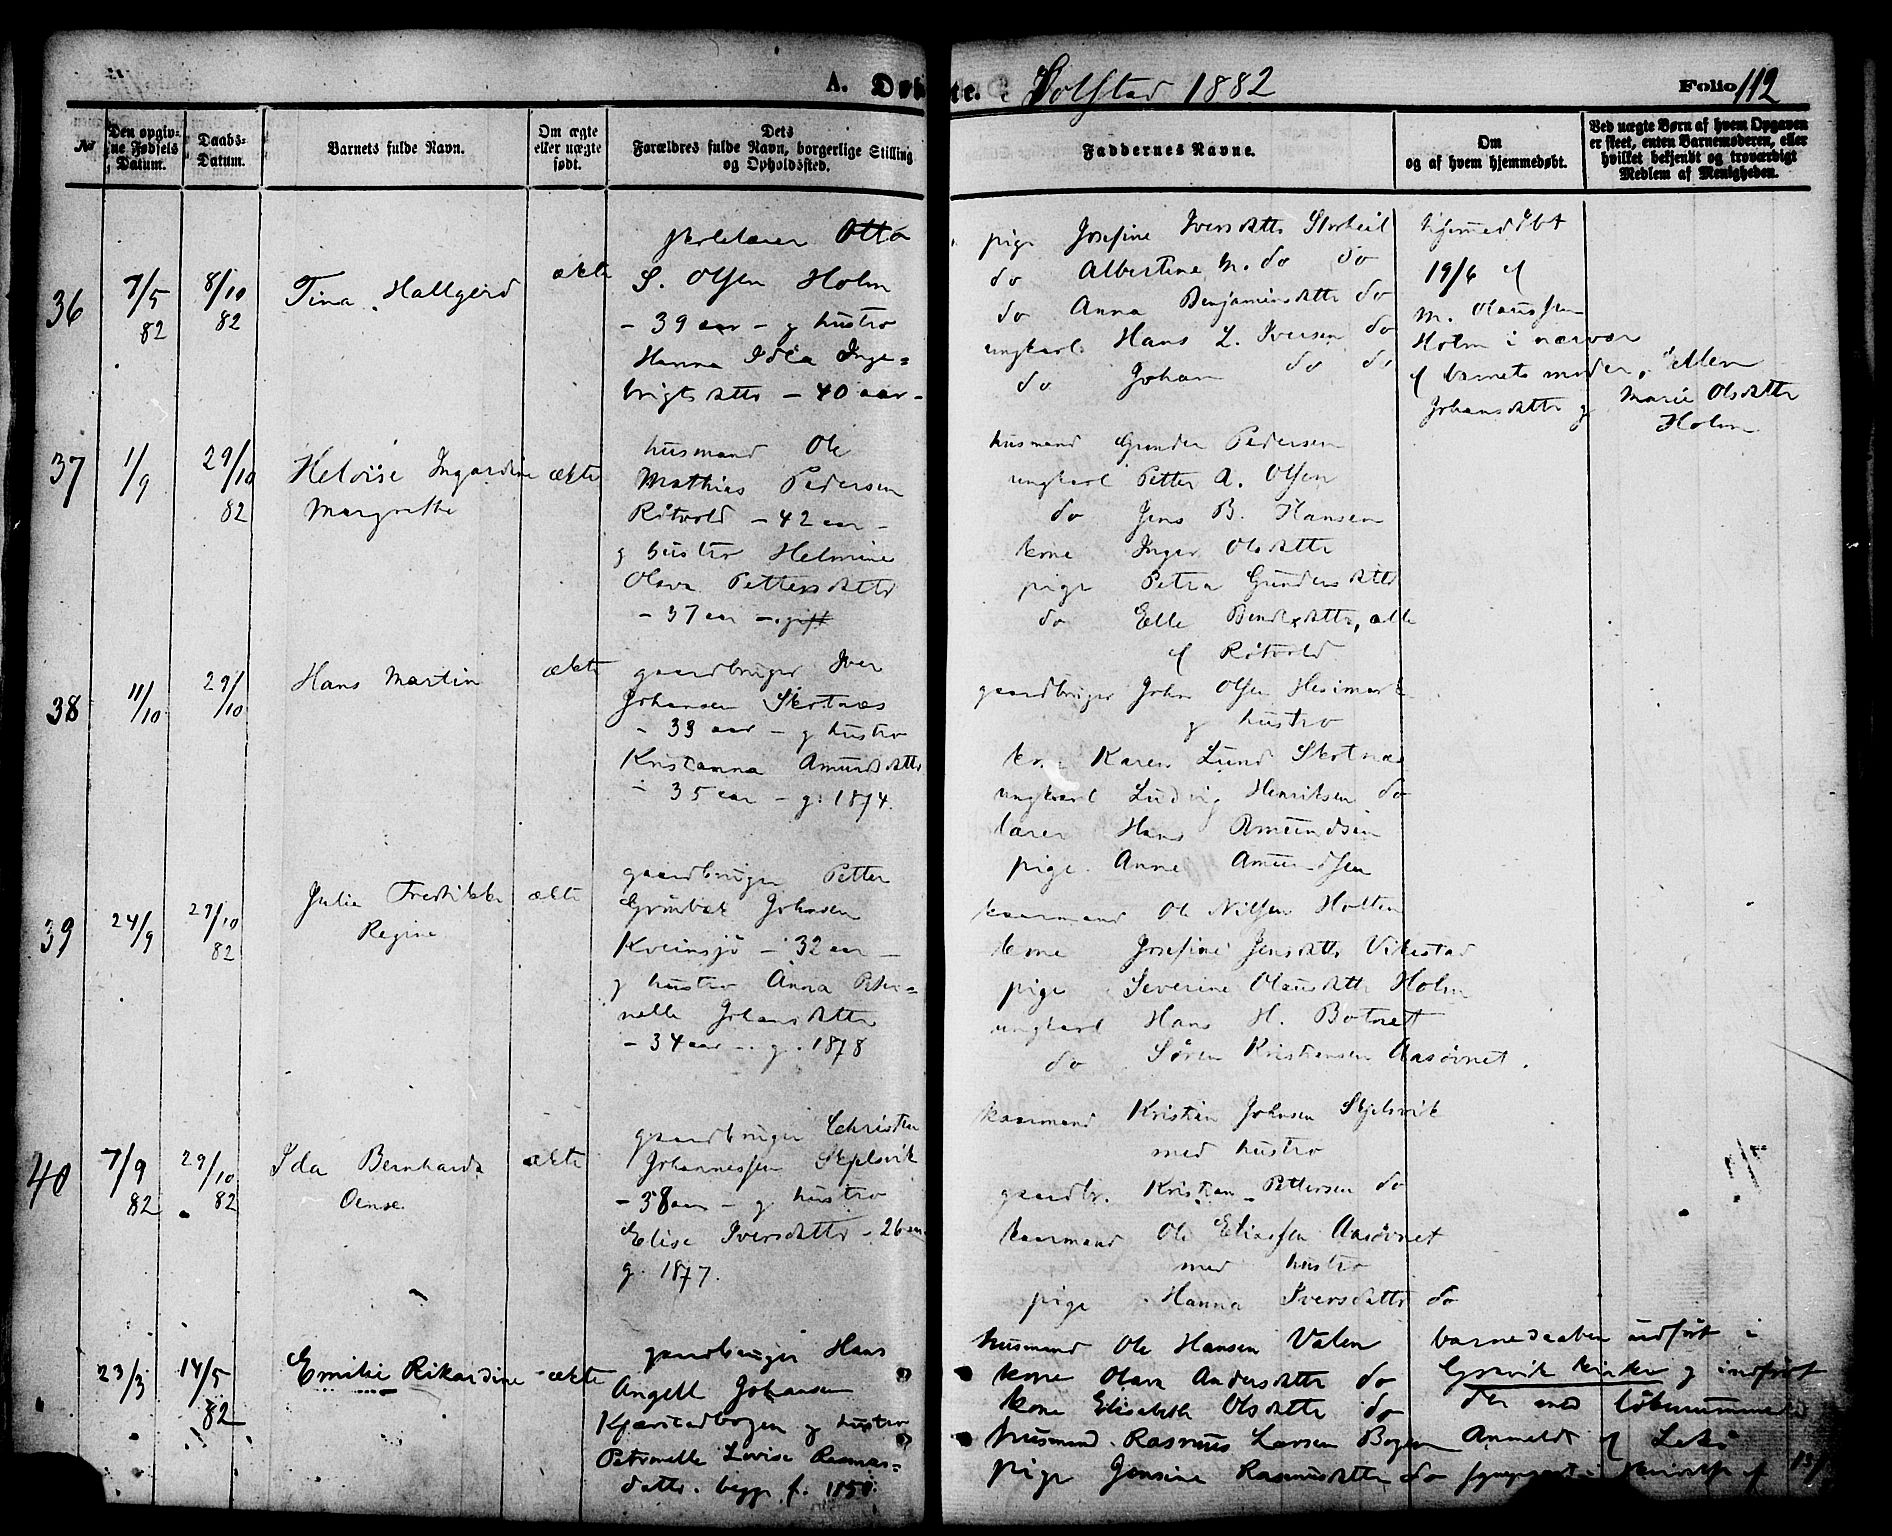 A. Døbte. Solstad 1882 Folio 112
No
Den opgivne Fødsels Datum.
Daabs-Datum.
Barnets fulde Navn.
Om ægte eller uægte født.
Dets Forældres fulde Navn, borgerlige Stilling og Opholdssted.
Faddernes Navne.
Om og af hvem hjemmedøbt.
Ved uægte Børn af hvem Opgaven er skeet, enten Barnemoderen, eller hvilket bekjendt og troværdigt Medlem af Menigheden.
36
7/5 82
8/10 82
Tina Hallgerd
ækte
skolelærer Otto
S. Olsen Holm
- 39 aar - g hustro
Hanna Inge=
brigtsdatter - 40 aar -
pige Josefine Iversdatter
do Albertine M. do do
do Anna Benjaminsdatter do
ungkarl Hans L. Iversen do
do Johan do do
hjemmedøbt
19/6 af
M. Olaussen
Holm i nærvær
af barnets moder, Ellen
Johansdatter g Marie Olsdatter
Holm
37
1/9
29/10 82
Heloise Ingardine
Margrethe
ækte
husmand Ole
Mathias Pedersen
Ritvold - 42 aar -
g hustro Helmine
Olava Pettersdatter
- 37 aar - gift
husmand Gunder Pedersen
ungkarl Petter A. Olsen
do Jens B. Hansen
kone Inger Olsdatter
pige Petra Gundersdatter
do Elle Bendixdatter, alle
af Ritvold
38
11/10
29/10
Hans Martin
ækte
gaardbruger Iver
Johansen Skotnes
- 33 aar - g hustro
Kristianna Amundsdatter
- 35 aar - g. 1874.
gaardbruger Johan Olsen
g hustro
kone Karen Lund Skotnes
ungkarl Ludvig Henriksen do
lærer Hans Amundsen
pige Anne Amundsen
39
24/9
29/10 82
Julie Fredrikke
Regine
ækte
gaardbruger Petter
Johnsen
Kveinsjø - 32 aar -
g hustro Anna Peter=
nelle Johansdatter
- 34 aar - g. 1878
kaarmand Ole Nilsen Holten
kone Josefine Jensdatter Vikestad
pige Severine Olausdatter Holm
ungkarl Hans H. Botnet
do Søren Kristiansen Aasøvnet.
40
7/9 82
29/10 82
Ida Bernharda
ækte
gaardbruger Christen
Johannessen Skjelsvik
- 38 aar - g hustro
Elise Iversdatter - 26 aar
g. 1877.
kaarmand Kristian Johnsen Skjelsvik
med hustro
gaardbr. Kristian Pettersen do
kaarmand Ole Eliassen Aasøvnet
med hustro
pige Hanna Iversdatter do
23/3
14/5 82
Emilie Rikardine
ækte
gaardbruger Hans
Angell Johansen
Kjærstadbogen g hustro
Petronelle Lovise Rasmus=
datter. begge f. 1850.
husmand Ole Hansen Valen
kone Olava Andersdatter do
kone Elisabeth Olsdatter do
husmand Rasmus Larsen Bogen
pige Jensine Rasmusdatter do
barnedaaben udført i
Gravvik kirke g indført
der med løbenummer
Anmeldt af Lekø